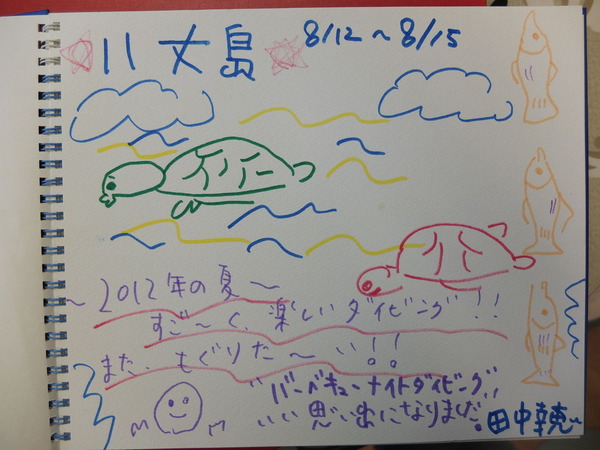 八丈島
8/12〜8/15
〜2012年の夏〜
すご〜く、楽しいダイビング!!
また、もぐりだ〜い!!
"バーベキューナイトダイビング"
いい思い出になりました。
田中